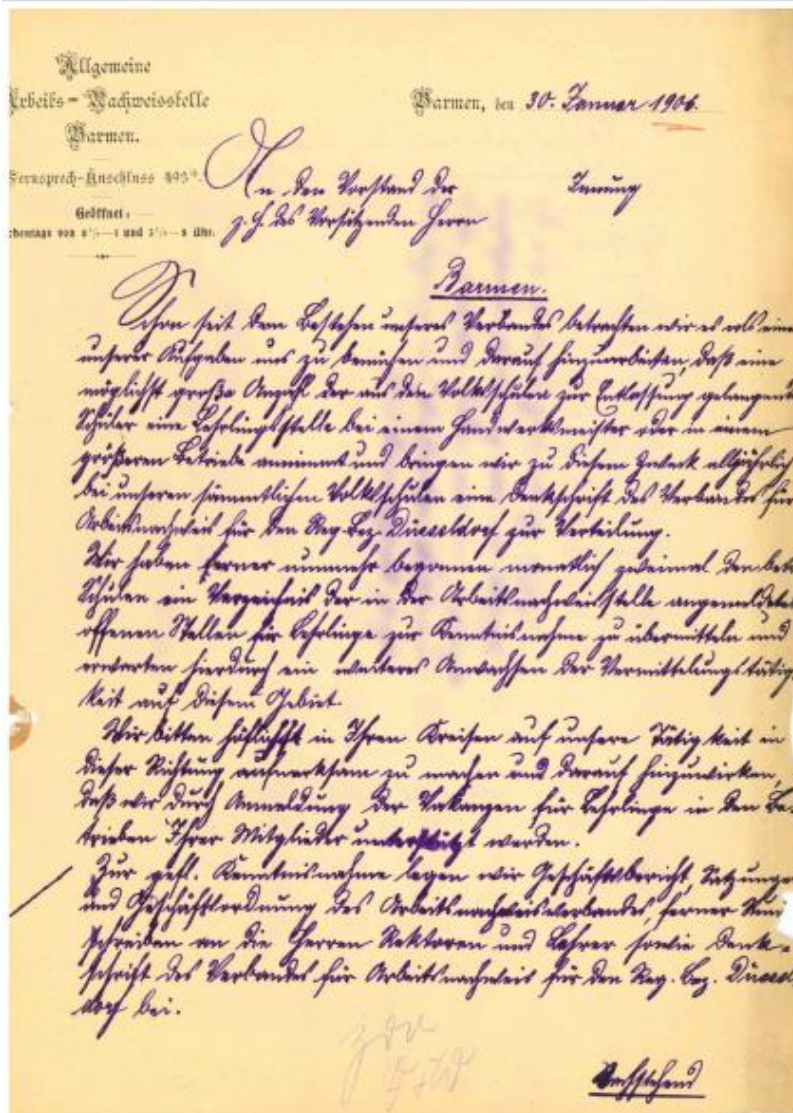 Allgemeine
Arbeits-Nachweisstelle
Barmen.
Fernsprech-Anschluss
Geöffnet:
und
Barmen, den 30. Januar 1906.
An den Vorstand der Innung
z. H. des Vorsitzenden Herrn
Barmen.
Schon seit dem Bestehen unseres Verbandes betrachten wir es als eine
unserer Aufgaben uns zu bemühen und darauf hinzuarbeiten, daß eine
möglichst große Anzahl der aus den Volksschulen zur Entlassung gelangend
Schüler eine Lehrlingsstelle bei einem Handwerksmeister oder in einem
größeren Betriebe annimmt und bringen wir zu diesem Zweck alljährlich
bei unseren sämmtlichen Volksschulen eine Denkschrift des Verbandes für
Arbeitsnachweis für den Reg. Bez. Düsseldorf zur Verteilung.
Wir haben ferner nunmehr begonnen monatlich zweimal den betr
Schulen ein Verzeichnis der in der Arbeitsnachweisstelle angemeldeten
offenen Stellen für Lehrlinge zur Kenntnisnahme zu übermitteln und
erwarten hierdurch ein weiteres Anwachsen der Vermittelungstätig
keit auf diesem Gebiet.
Wir bitten höflichst in Ihren Kreisen auf unsere Tätigkeit in
dieser Richtung aufmerksam zu machen und darauf hinzuwirken,
daß wir durch Anmeldung der Vakanzen für Lehrlinge in den Be-
trieben Ihrer Mitglieder unterstützt werden.
Zur gefl. Kenntnisnahme legen wir Geschäftsbericht, Satzungen
und Geschäftsordnung des Arbeitsnachweisverbandes, ferner
schreiben an die Herren Rektoren und Lehrer sowie Denk-
schrift des Verbandes für Arbeitsnachweis für den Reg. Bez. Düssel
dorf bei.
Nachstehend